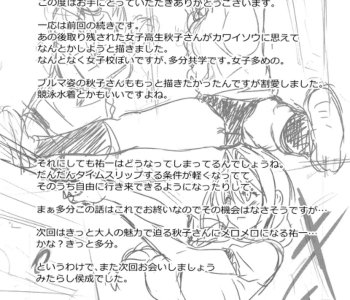 この度はお手にとっていただきありがとうございます。
一応は前回の続きです。
あの後取り残された女子高生秋子さんがカワイソウに思えて
なんとかしようと描きました。
なんとなく女子校ぽいですが、多分共学です。女子多めの。
ブルマ姿の秋子さんももっと描きたかったんですが割愛しました。
競泳水着とかもいいですよね。
それにしても祐一はどうなってしまってるんでしょうね。
だんだんタイムスリップする条件が軽くなってて
そのうち自由に行き来できるようになったりして、
まぁ多分この話はこれでお終いなのでその機会はなさそうですが…
次回はきっと大人の魅力で迫る秋子さんにメロメロになる祐一…
かな？きっと多分。
というわけで、また次回お会いしましょう
みたらし侯成でした。